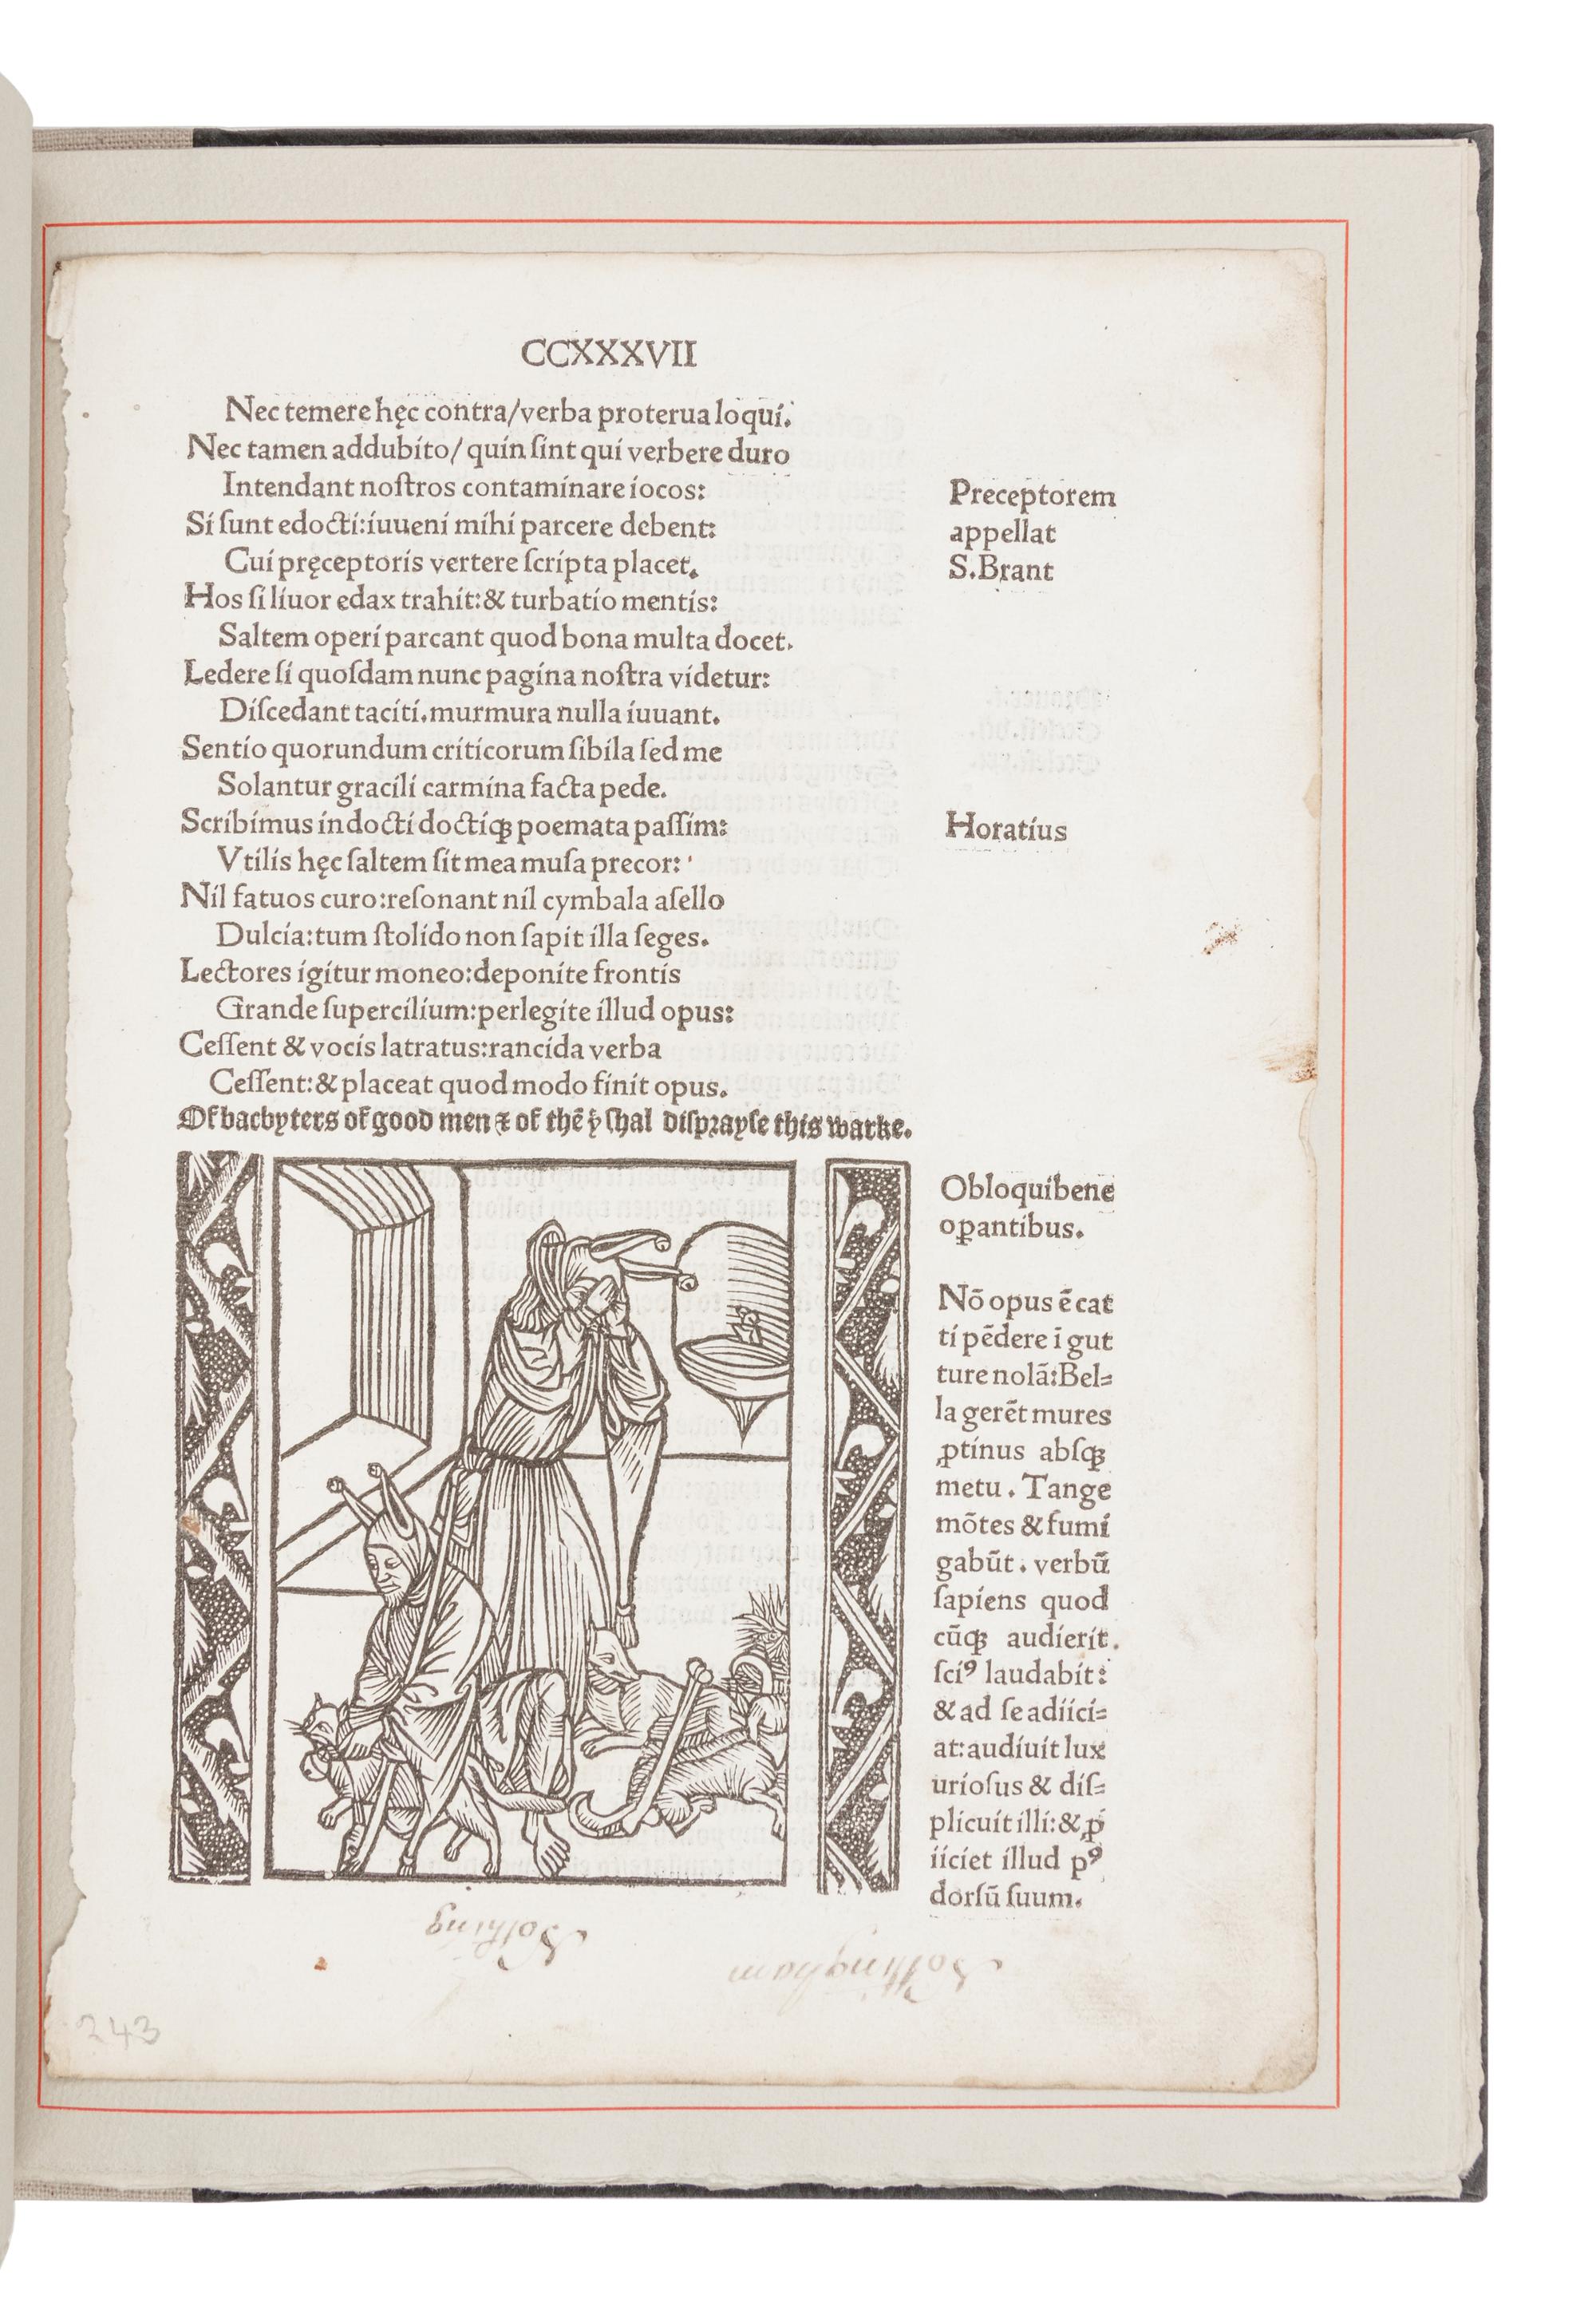 CCXXXVII
Nec temere hęc contra/verba proterua loqui.
Nec tamen addubito/ quin ſint qui verbere duro
Intendant noſtros contaminare iocos:
Si ſunt edocti:iuueni mihi parcere debent:
Cui pręceptoris vertere ſcripta placet.
Hos ſi liuor edax trahit:& turbatio mentis:
Saltem operi parcant quod bona multa docet.
Ledere ſi quoſdam nunc pagina noſtra videtur:
Diſcedant taciti.murmura nulla iuuant.
Sentio quorundum criticorum ſibila ſed me
Solantur gracili carmina facta pede.
Scribimus indocti doctiꝗ poemata paſſim:
Vtilis hęc ſaltem ſit mea muſa precor:
Nil fatuos curo:reſonant nil cymbala aſello
Dulcia:tum ſtolido non ſapit illa ſeges.
Lectores igitur moneo:deponite frontis
Grande ſupercilium:perlegite illud opus:
Ceſſent & vocis latratus:rancida verba
Ceſſent:& placeat quod modo finit opus.
Preceptorem
appellat
S.Brant
Horatius
Of bacbyters of good men ⁊ of thē þͭ ſhal diſprayſe this warke.
Obloqui bene
oꝑantibus.
Nō opus ē cat
ti pēdere ī gut
ture nolā:Bel=
la gerēt mures
ꝓtinus abſꝗ
metu . Tange
mōtes & fumi
gabūt . verbū
ſapiens quod
cūꝗ audierit.
ſciꝰ laudabit:
& ad ſe adiici=
at:audiuit lux
urioſus & diſ=
plicuit illi:&ꝓ
iiciet illud pꝰ
dorſū ſuum.
Notting
Nottingham
243